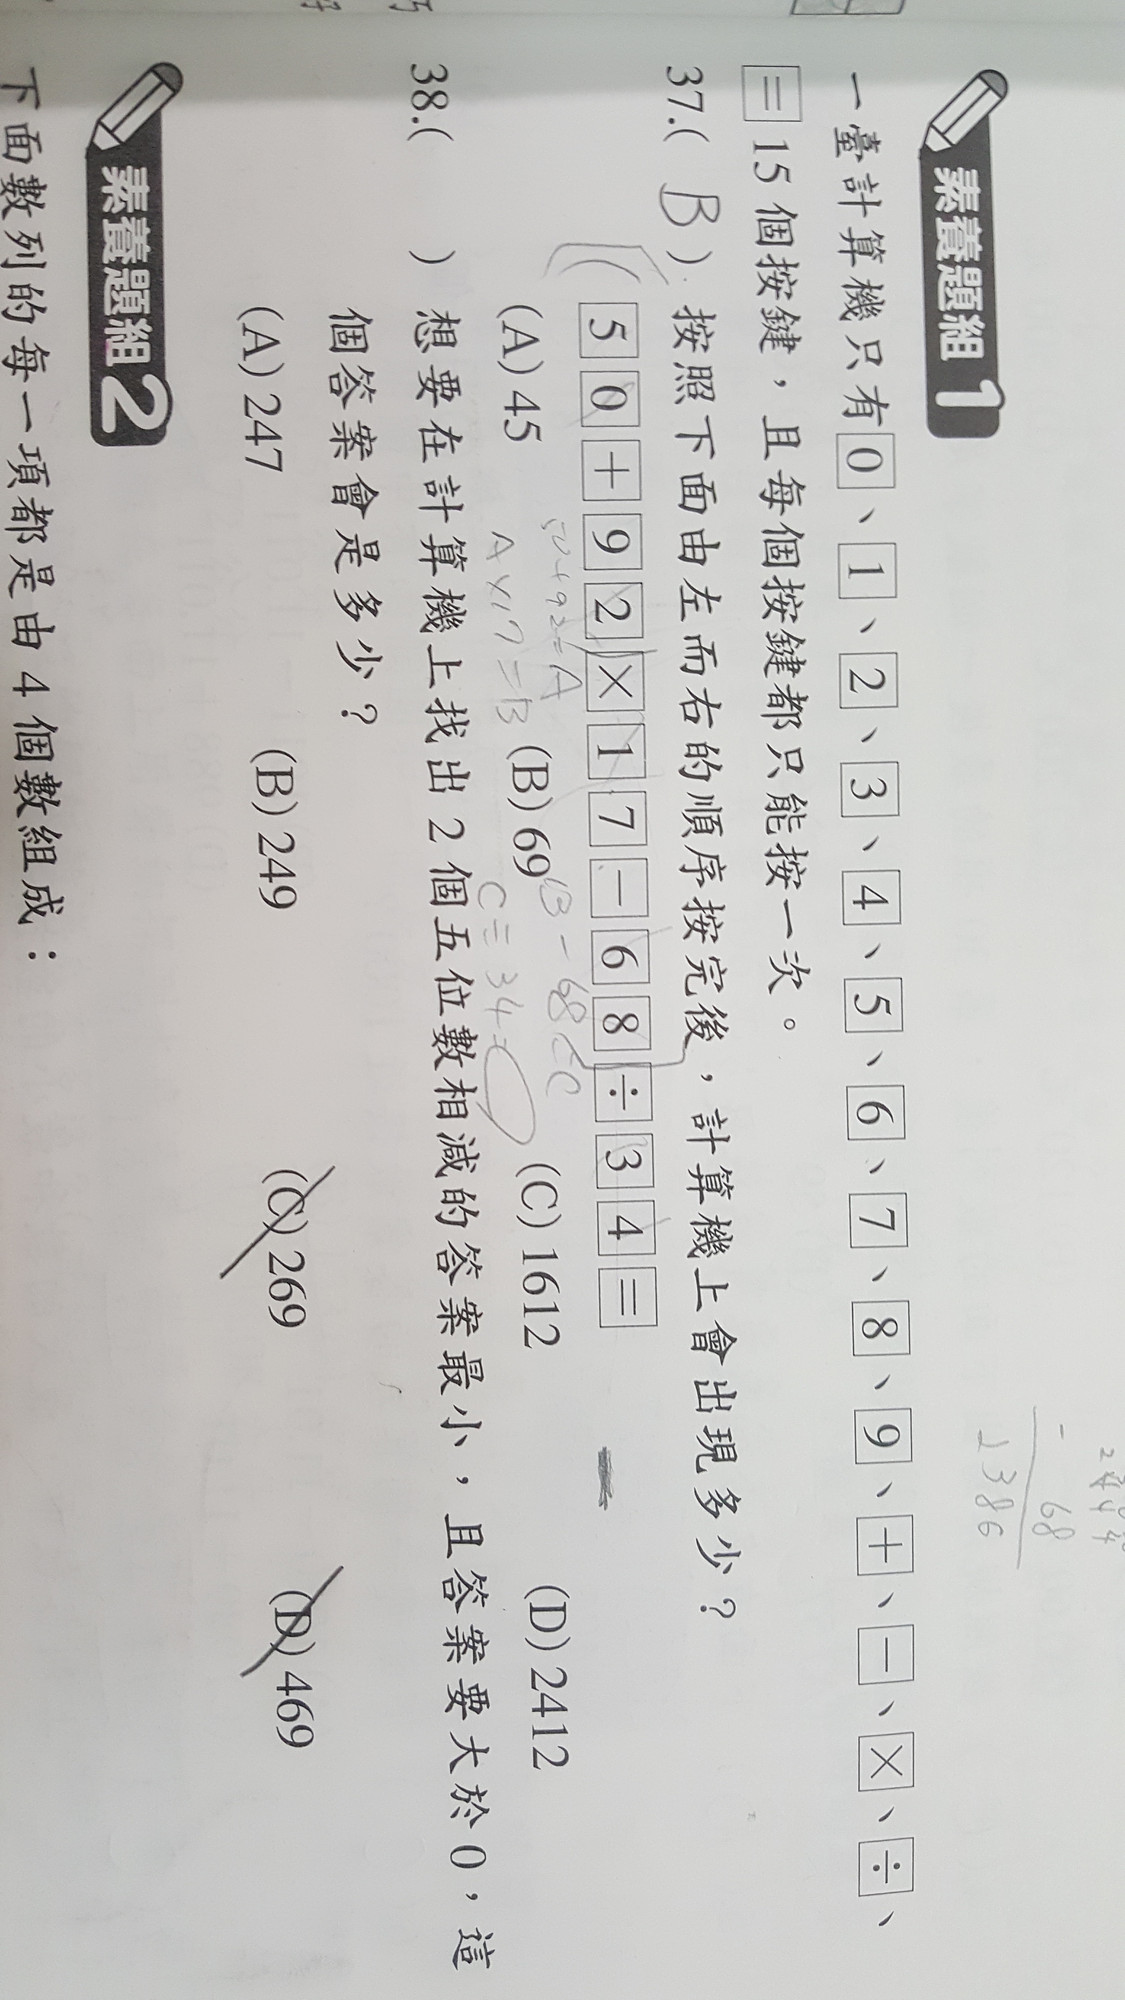 素養題組1
一臺計算機只有0、1、2、3、4、5、6、7、8、9、+、−、×、÷、
= 15個按鍵，且每個按鍵都只能按一次。
37.( B ) 按照下面由左而右的順序按完後，計算機上會出現多少？
5 0 + 9 2 × 1 7 − 6 8 ÷ 3 4 =
(A) 45 (B) 69 (C) 1612 (D) 2412
50+92=A
A×17=B
B-68=C
C÷34=
38.( ) 想要在計算機上找出 2 個五位數相減的答案最小，且答案要大於0，這
個答案會是多少？
(A) 247 (B) 249 (C) 269 (D) 469
- 68
素養題組2
下面數列的每一項都是由 4 個數組成：